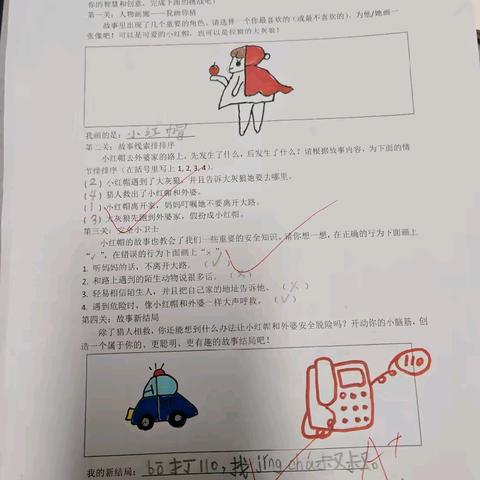 你的智慧和创意，完成下面的挑战吧！
第一关：人物画廊——我画你猜
故事里出现了几个重要的角色。请选择一个你最喜欢的（或最不喜欢的），为他/她画一
张像吧！可以是可爱的小红帽，也可以是狡猾的大灰狼！
我画的是：小红帽
第二关：故事线索排排序
小红帽去外婆家的路上，先发生了什么，后发生了什么？请根据故事内容，为下面的情
节排排序（在括号里写上 1, 2, 3, 4）.
（2）小红帽遇到了大灰狼，并且告诉大灰狼她要去哪里。
（4）猎人救出了小红帽和外婆。
（1）小红帽离开家，妈妈叮嘱她不要离开大路。
（3）大灰狼先跑到外婆家，假扮成小红帽。
第三关：安全小卫士
小红帽的故事也教会了我们一些重要的安全知识。请你想一想，在正确的行为下面画上
“√”，在错误的行为下面画上“×”。
1. 听妈妈的话，不离开大路。（√）
2. 和路上遇到的陌生动物说很多话。（×）
3. 轻易相信陌生人，并且把自己家的地址告诉他。（×）
4. 遇到危险时，像小红帽和外婆一样大声呼救。（√）
第四关：故事新结局
除了猎人相救，你还能想到什么办法让小红帽和外婆安全脱险吗？开动你的小脑筋，创
造一个属于你的、更聪明、更有趣的故事结局吧！
110
我的新结局：bō打110，找jǐng chá叔叔。
A+